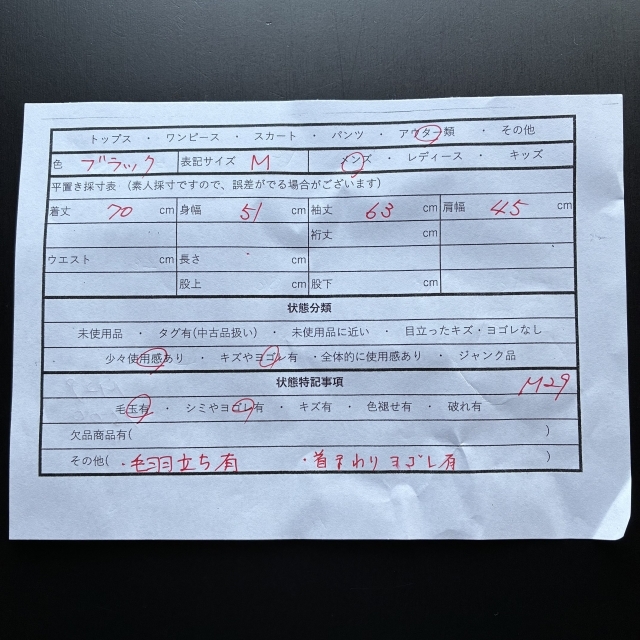 トップス ・ ワンピース ・ スカート ・ パンツ ・ アウター類 ・ その他
色 ブラック 表記サイズ M メンズ ・ レディース ・ キッズ
平置き採寸表 (素人採寸ですので、誤差がでる場合がございます)
着丈 70 cm 身幅 51 cm 袖丈 63 cm 肩幅 45 cm
裄丈 cm
ウエスト cm 長さ cm
股上 cm 股下 cm
状態分類
未使用品 ・ タグ有(中古品扱い) ・ 未使用品に近い ・ 目立ったキズ・ヨゴレなし
少々使用感あり ・ キズやヨゴレ有 ・全体的に使用感あり ・ ジャンク品
状態特記事項 M29
毛玉有 ・ シミやヨゴレ有 ・ キズ有 ・ 色褪せ有 ・ 破れ有
欠品商品有( )
その他( ・毛羽立ち有 ・首まわりヨゴレ有 )